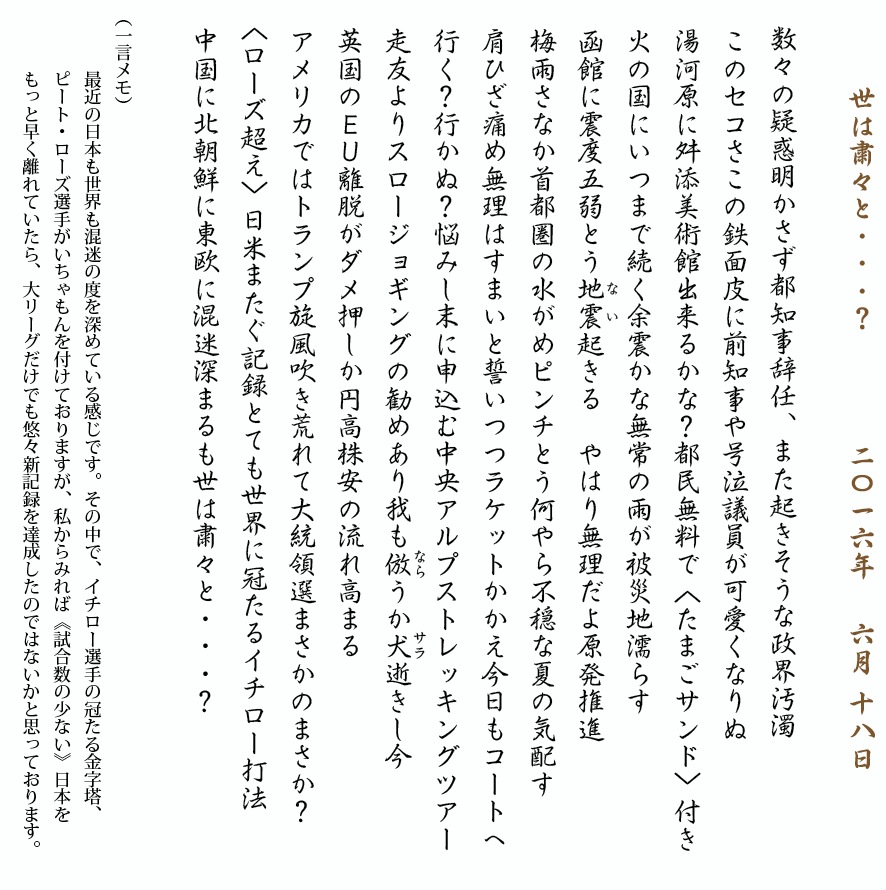 世は粛々と・・・？　　　二〇一六年　六月 十八日
数々の疑惑明かさず都知事辞任、また起きそうな政界汚濁
このセコさこの鉄面皮に前知事や号泣議員が可愛くなりぬ
湯河原に舛添美術館出来るかな？都民無料で〈たまごサンド〉付き
火の国にいつまで続く余震かな無常の雨が被災地濡らす
函館に震度五弱とう地震起きる　やはり無理だよ原発推進
ない
梅雨さなか首都圏の水がめピンチとう何やら不穏な夏の気配す
肩ひざ痛め無理はすまいと誓いつつラケットかかえ今日もコートへ
行く？行かぬ？悩みし末に申込む中央アルプストレッキングツアー
走友よりスロージョギングの勧めあり我も倣うか犬逝きし今
なら
サラ
英国のＥＵ離脱がダメ押しか円高株安の流れ高まる
アメリカではトランプ旋風吹き荒れて大統領選まさかのまさか？
〈ローズ超え〉日米またぐ記録とても世界に冠たるイチロー打法
中国に北朝鮮に東欧に混迷深まるも世は粛々と・・・？
（一言メモ）
最近の日本も世界も混迷の度を深めている感じです。その中で、イチロー選手の冠たる金字塔、
ピート・ローズ選手がいちゃもんを付けておりますが、私からみれば《試合数の少ない》日本を
もっと早く離れていたら、大リーグだけでも悠々新記録を達成したのではないかと思っております。